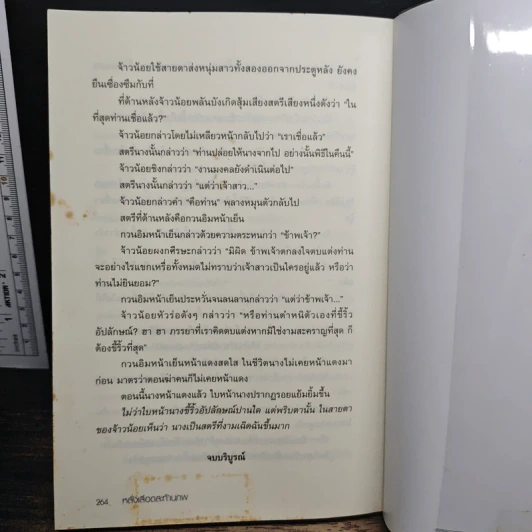 จ้าวน้อยใช้สายตาส่งหนุ่มสาวทั้งสองออกจากประตูหลัง ยังคง
ยืนเซื่องซึมกับที่
ที่ด้านหลังจ้าวน้อยพลันบังเกิดสุ้มเสียงสตรีเสียงหนึ่งดังว่า "ใน
ที่สุดท่านเชื่อแล้ว?"
จ้าวน้อยกล่าวโดยไม่เหลียวหน้ากลับไปว่า "เราเชื่อแล้ว"
สตรีนางนั้นกล่าวว่า "ท่านปล่อยให้นางจากไป อย่างนั้นพิธีในคืนนี้"
จ้าวน้อยชิงกล่าวว่า "งานมงคลยังดำเนินต่อไป"
สตรีนางนั้นกล่าวว่า "แต่ว่าเจ้าสาว..."
จ้าวน้อยกล่าวคำ "คือท่าน" พลางหมุนตัวกลับไป
สตรีที่ด้านหลังคือกวนอิมหน้าเย็น
กวนอิมหน้าเย็นกล่าวด้วยความตระหนกว่า "ข้าพเจ้า?"
จ้าวน้อยผงกศีรษะกล่าวว่า "มิผิด ข้าพเจ้าตกลงใจตบแต่งท่าน
จะอย่างไรแขกเหรื่อทั้งหมดไม่ทราบว่าเจ้าสาวเป็นใครอยู่แล้ว หรือว่า
ท่านไม่ยินยอม?"
กวนอิมหน้าเย็นประหวั่นจนลนลานกล่าวว่า "แต่ว่าข้าพเจ้า..."
จ้าวน้อยหัวร่อดังๆ กล่าวว่า "หรือท่านตำหนิตัวเองที่ขี้ริ้ว
อัปลักษณ์? ฮา ฮา ภรรยาที่เราคิดตบแต่งหากมิใช่งามสะคราญที่สุด ก็
ต้องขี้ริ้วที่สุด"
กวนอิมหน้าเย็นหน้าแดงสดใส ในชีวิตนางไม่เคยหน้าแดงมา
ก่อน มาตรว่าตอนฆ่าคนก็ไม่เคยหน้าแดง
ตอนนี้นางหน้าแดงแล้ว ใบหน้านางปรากฏรอยแย้มยิ้มขึ้น
ไม่ว่าใบหน้านางขี้ริ้วอัปลักษณ์ปานใด แต่พริบตานั้น ในสายตา
ของจ้าวน้อยเห็นว่า นางเป็นสตรีที่งามเฉิดฉันขึ้นมาก
จบบริบูรณ์
264 หลั่งเลือดสะท้านภพ